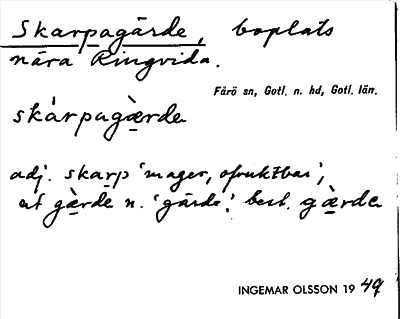 Skarpagärde, boplats
nära Ringvida.
Fårö sn, Gotl. n. hd, Gotl. län.
skàrpagærde
adj. skarp 'mager, ofruktbar',
gærde n. 'gärde', best. gærde
INGEMAR OLSSON 19 49